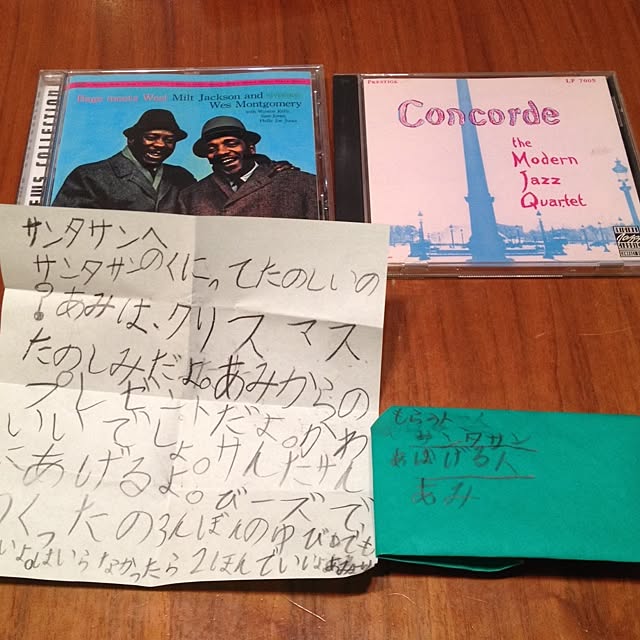 EWS COLLECTION
Bags meets Wes! Milt Jackson and
Wes Montgomery
with Wynton Kelly,
Sam Jones,
Philly Joe Jones
PRESTIGE
LP 7005
Concorde
the
Modern
Jazz
Quartet
サンタサンへ
サンタサンのくにってたのしいの
?あみは、クリスマス
たのしみだよ。あみからの
プレゼントだよ。かわ
いいでしょ。けんたサん
あげるよ。びーズで
つくったの3んぼんのゆびでも
いいよ。はいらなかったら2ほんでいいよ
サンタサン
あげる人
あみ